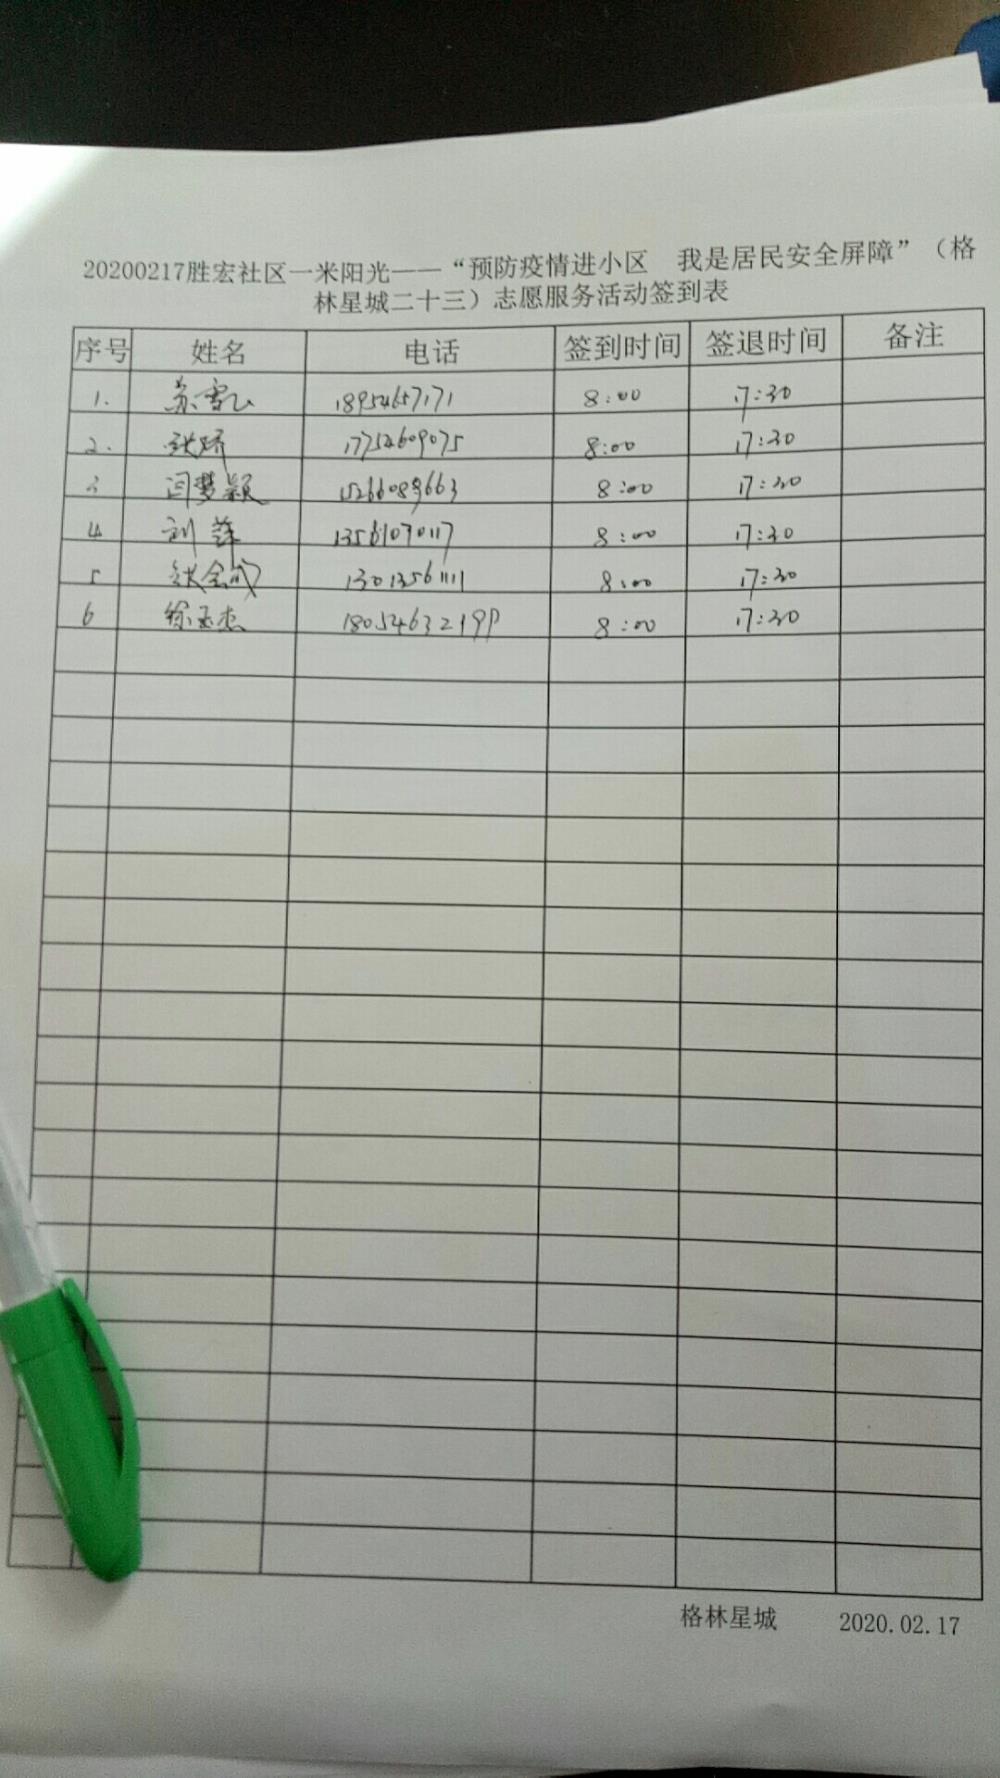 20200217胜宏社区一米阳光——“预防疫情进小区　我是居民安全屏障”（格
林星城二十三）志愿服务活动签到表
序号 姓名 电话 签到时间 签退时间 备注
1. 苏雪 18954657171 8:00 17:30
2. 张娇 17754609075 8:00 17:30
3 闫梦颖 8:00 17:30
4 刘萍 13561070117 8:00 17:30
5 张全成 13013561111 8:00 17:30
6 徐玉杰 18054632199 8:00 17:30
格林星城　2020.02.17